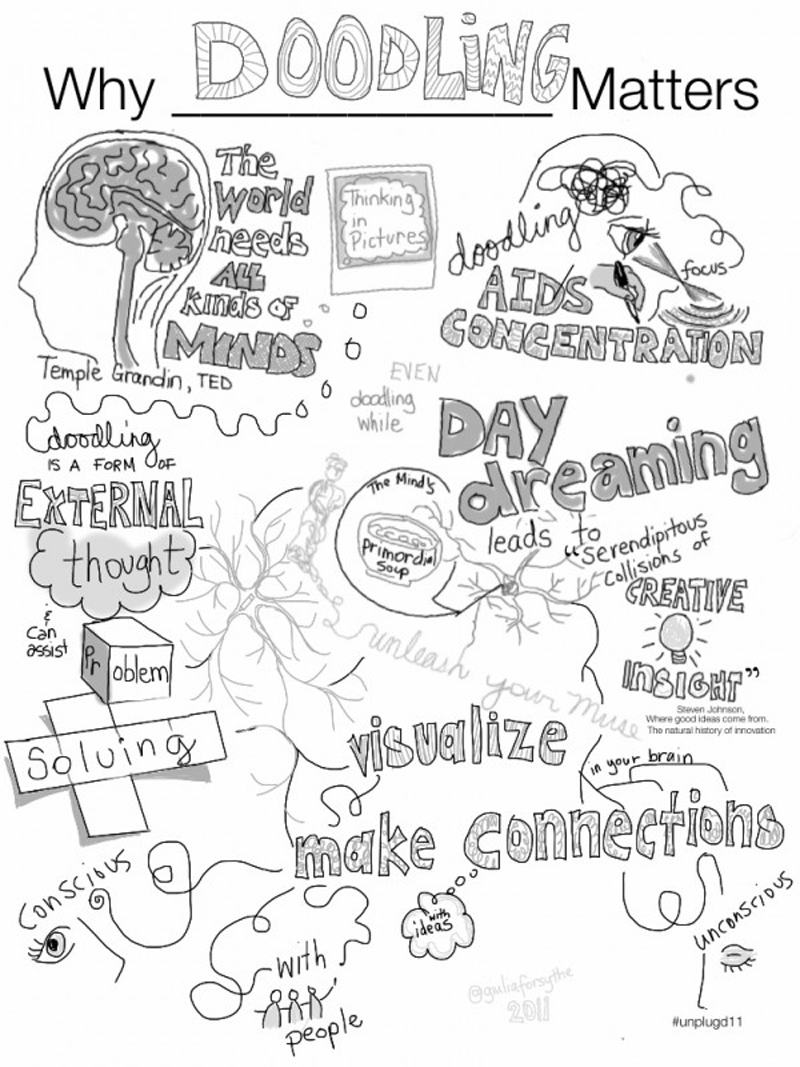 Why DOODLiNG Matters
The
World
needs
ALL
Kinds OF
MINDS
Temple Grandin, TED
Thinking
in
Pictures
doodling
AIDS
focus
CONCENTRATION
EVEN
doodling
while
DAY
dreaming
leads to
"Serendipitous
Collisions of
CREATIVE
INSIGHT"
Steven Johnson,
Where good ideas come from.
The natural history of innovation
doodling
IS A FORM OF
EXTERNAL
thought
& Can
assist
Problem
Solving
The Mind's
Primordial
Soup
unleash your muse
visualize
in your brain
make connections
with
ideas
Conscious
with
people
unconscious
@giuliaforsythe
2011
#unplugd11